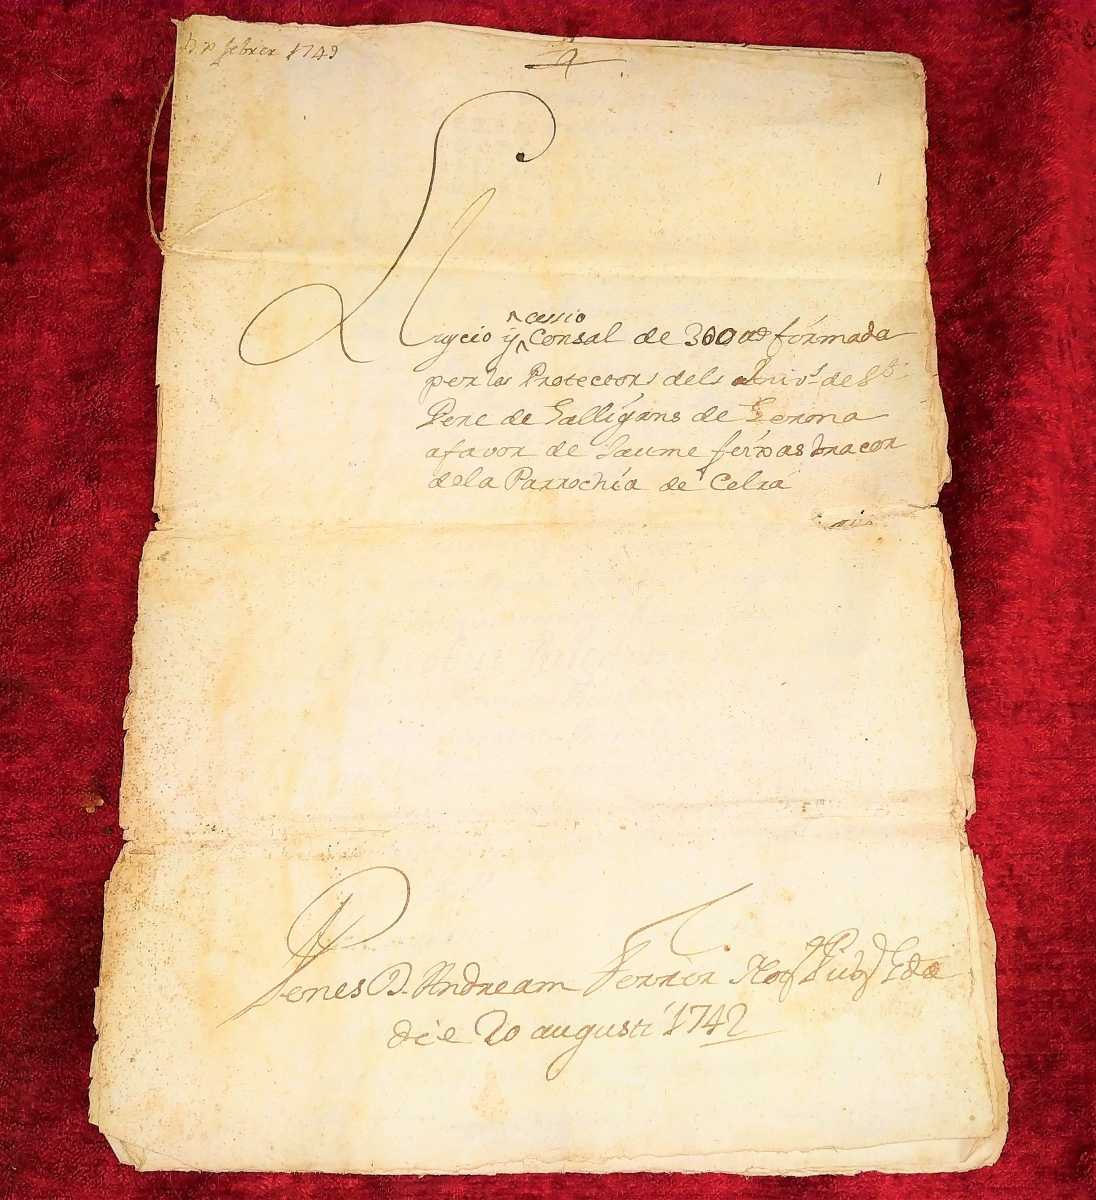 febrer 1743
cessio
Luycio y Consal de 300 formada
per los Protectors dels de St
Pere de Galligans de Gerona
a favor de Jaume bracer
de la Parrochia de Celrá
Penes D. Andream Ferrer Noty Puby
die 20 augusti 1742